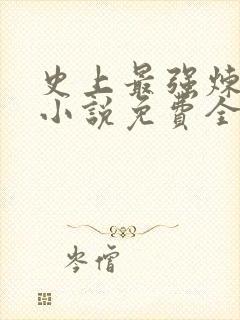 史上最强炼
小説免費全
岑僧